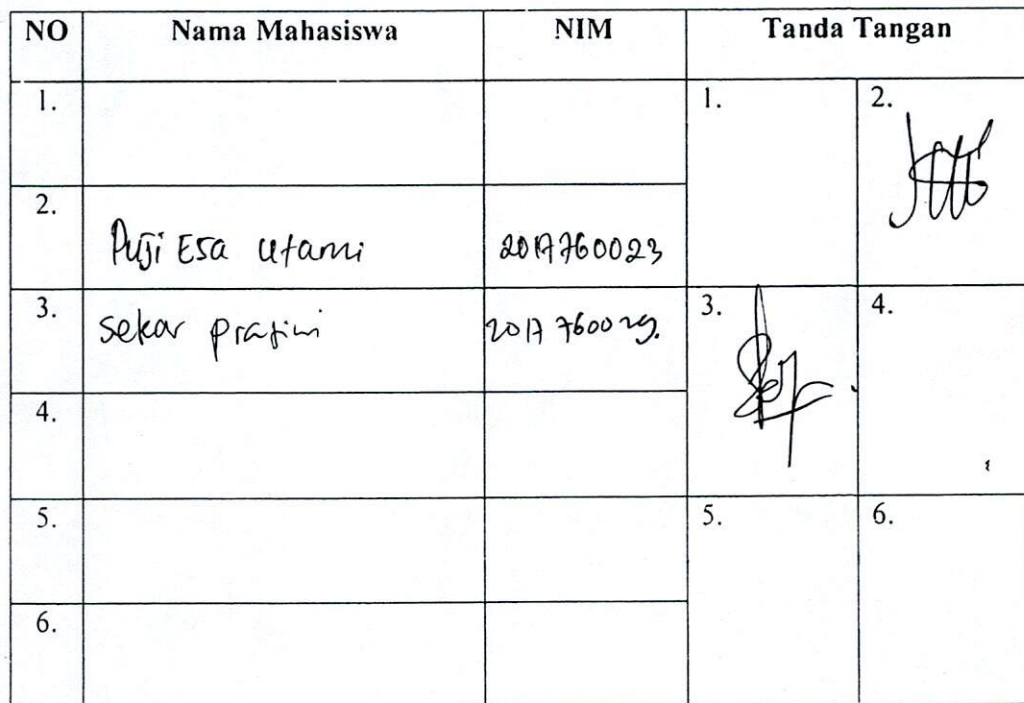 NO Nama Mahasiswa NIM Tanda Tangan
1. 1. 2.
2. Puji Esa Utami 2017760023
3. Sekar Pratiwi 2017760029. 3. 4.
4.
5. 5. 6.
6.